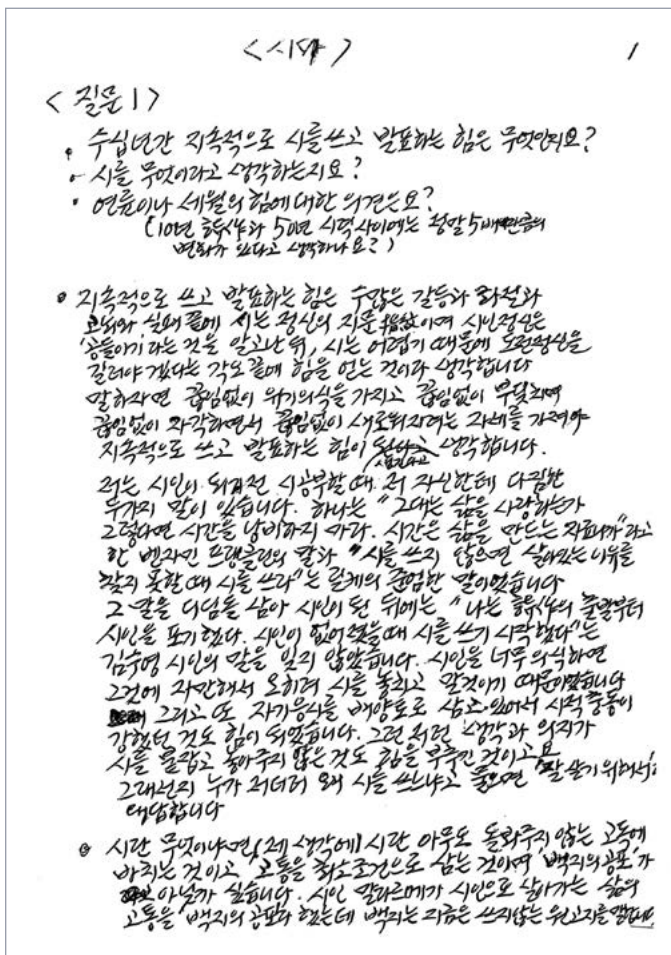 <시다> 1
<질문1>
· 수십년간 지속적으로 시를 쓰고 발표하는 힘은 무엇인지요?
· 시를 무엇이라고 생각하는지요?
· 연륜이나 세월의 힘에 대한 의견은요?
(10년 습작과 50년 시력 사이에는 정말 5배만큼의
변화가 있다고 생각하나요?)
· 지속적으로 쓰고 발표하는 힘은 수많은 갈등과 좌절과
고뇌와 실패 끝에 시는 정신의 지문指紋이며 시인정신은
'공들이기'라는 것을 알고난 뒤, 시는 어렵기 때문에 도전정신을
길러야겠다는 각오 끝에 힘을 얻는 것이라 생각합니다
말하자면 끊임없이 위기의식을 가지고 끊임없이 부딪치며
끊임없이 자각하면서 끊임없이 새로워지려는 자세를 가져야
지속적으로 쓰고 발표하는 힘이 생긴다고 생각합니다.
저는 시인이 되기전 시공부할 때 저 자신한테 다짐한
두가지 말이 있습니다. 하나는 "그대는 삶을 사랑하는가
그렇다면 시간을 낭비하지 마라. 시간은 삶을 만드는 자료니까"라고
한 벤자민 프랭클린의 말과 "시를 쓰지 않으면 살아있는 이유를
찾지 못할 때 시를 쓰라"는 릴케의 준엄한 말이었습니다
그 말을 다짐을 삼아 시인이 된 뒤에는 "나는 출발부터
시인을 포기했다. 시인이 없어졌을 때 시를 쓰기 시작했다"는
김수영 시인의 말을 잊지 않았습니다. 시인을 너무 의식하면
그것에 자만해서 오히려 시를 놓치고 말것이기 때문이었습니다
그리고 또 자기응시를 배양토로 삼고 있어서 시적 충동이
강했던 것도 힘이 되었습니다. 그런 저런 생각과 의지가
시를 붙잡고 놓아주지 않은 것도 힘을 부추긴 것이고요
그래선지 누가 저더러 왜 시를 쓰느냐고 물으면 '잘 살기 위해서'라
대답합니다
· 시란 무엇이냐면 (제 생각에) 시란 아무도 돌봐주지 않는 고독에
바치는 것이고 고통을 최소조건으로 삼는 것이며 '백지의 공포'가
아닐까 싶습니다. 시인 말라르메가 시인으로 살아가는 삶의
고통을 '백지의 공포'라 했는데 백지는 지금은 쓰지않는 원고지를